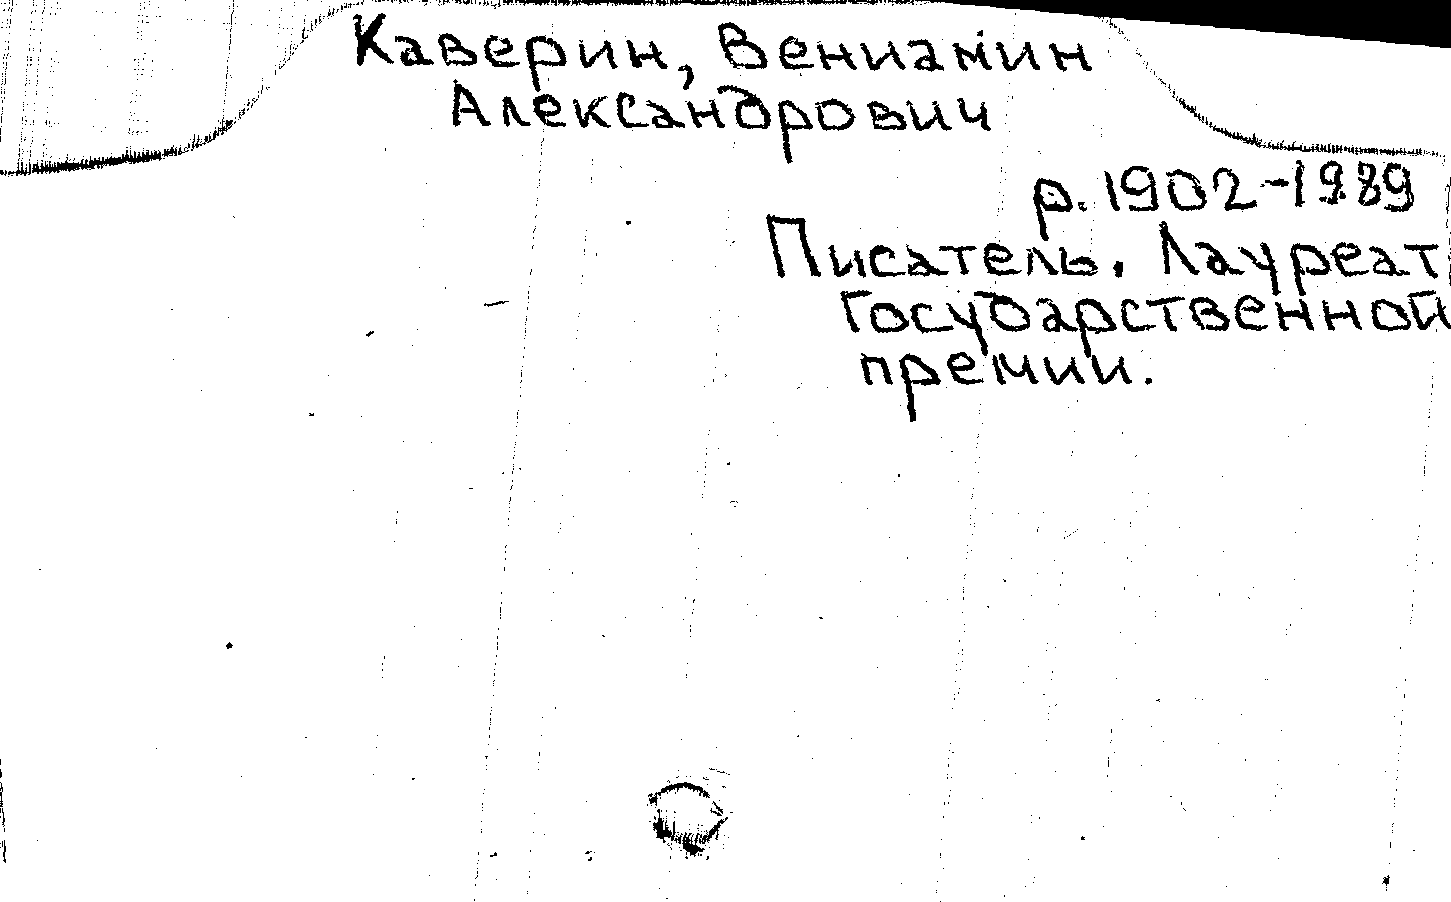 Каверин, Вениамин
Александрович
р. 1902-1989
Писатель. Лауреат
Государственной
премии.